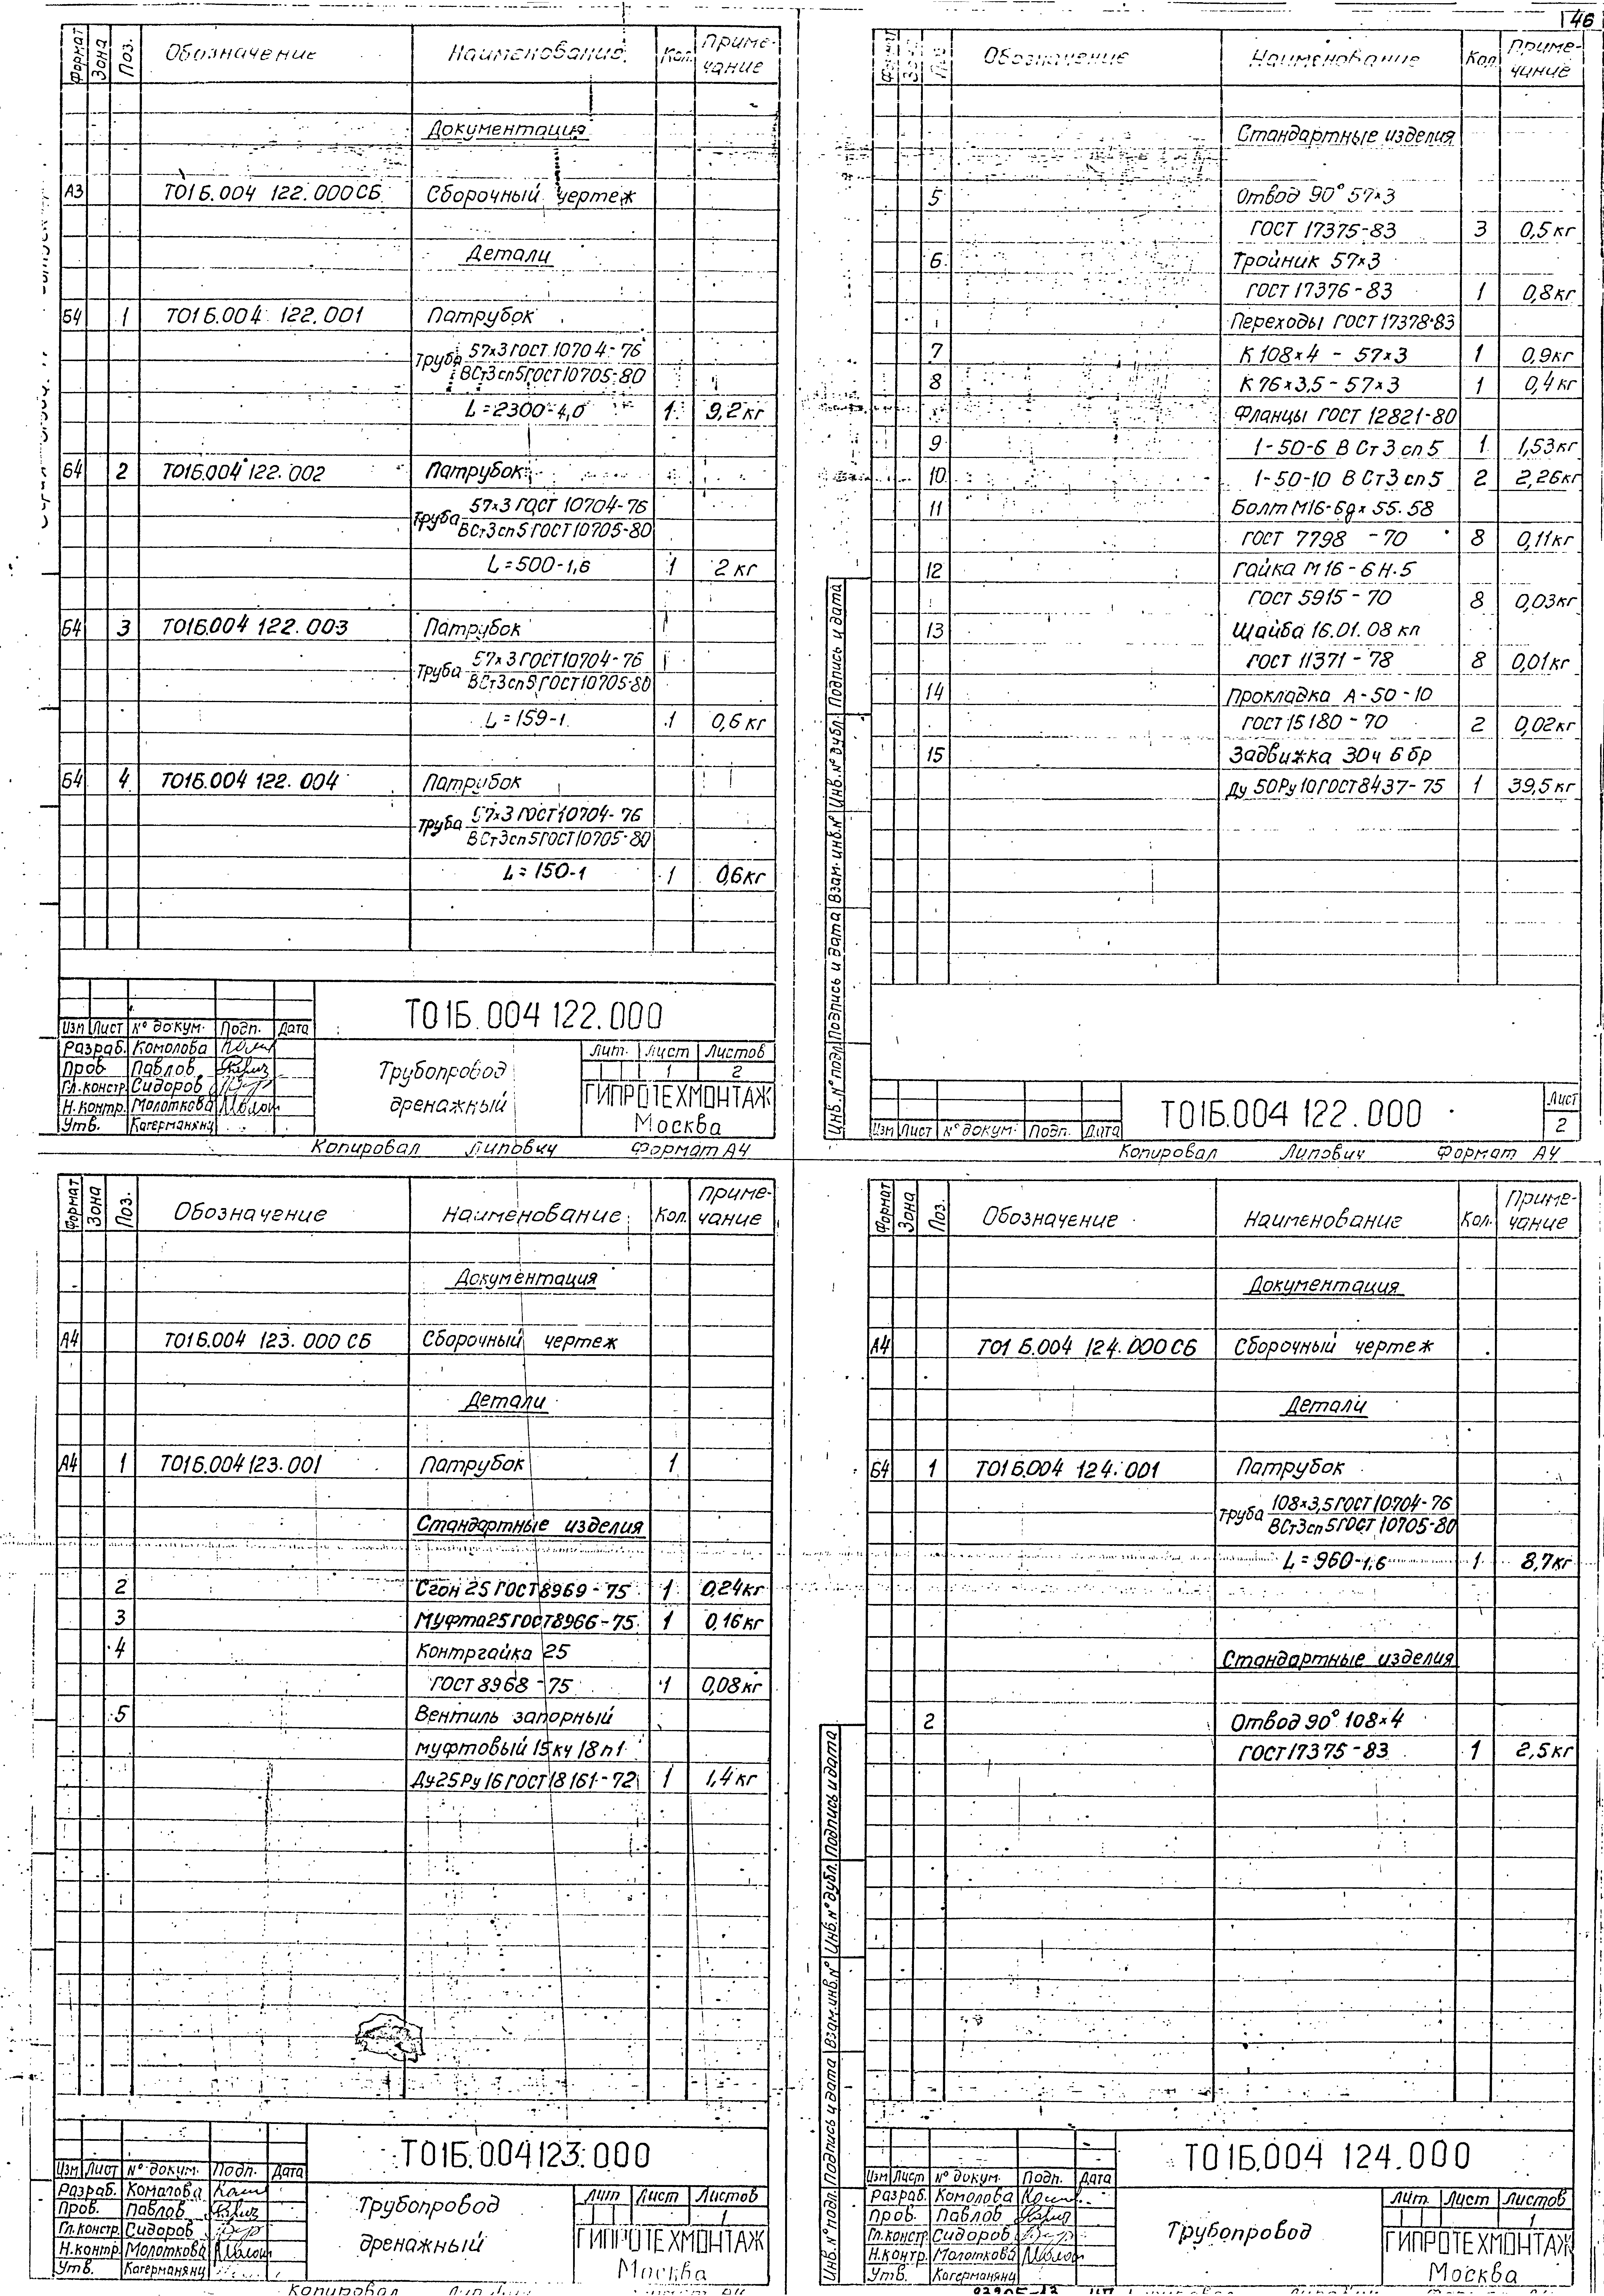 146
Формат Зона Поз. Обозначение Наименование Кол. Приме-
чание
Документация
А3 Т01Б.004 122.000СБ Сборочный чертеж
Детали
Б4 1 Т01Б.004 122.001 Патрубок
Труба 57х3 ГОСТ 10704-76
ВСт3сп5 ГОСТ 10705-80
L=2300-4,0 1 9,2 кг
Б4 2 Т01Б.004 122.002 Патрубок
Труба 57х3 ГОСТ 10704-76
ВСт3сп5 ГОСТ 10705-80
L=500-1,6 1 2 кг
Б4 3 Т01Б.004 122.003 Патрубок
Труба 57х3 ГОСТ 10704-76
ВСт3сп5 ГОСТ 10705-80
L=159-1 1 0,6 кг
Б4 4 Т01Б.004 122.004 Патрубок
Труба 57х3 ГОСТ 10704-76
ВСт3сп5 ГОСТ 10705-80
L=150-1 1 0,6 кг
Т01Б.004 122.000
Изм Лист № докум. Подп. Дата
Разраб. Комолова
Пров. Павлов
Гл.констр. Сидоров
Н.контр. Молоткова
Утв. Кагерманянц
Трубопровод
дренажный
Лит. Лист Листов
1 2
ГИПРОТЕХМОНТАЖ
Москва
Копировал Липович Формат А4
Формат Зона Поз. Обозначение Наименование Кол. Приме-
чание
Стандартные изделия
5 Отвод 90° 57х3
ГОСТ 17375-83 3 0,5 кг
6 Тройник 57х3
ГОСТ 17376-83 1 0,8 кг
Переходы ГОСТ 17378-83
7 К 108х4 - 57х3 1 0,9 кг
8 К 76х3,5 - 57х3 1 0,4 кг
Фланцы ГОСТ 12821-80
9 1-50-6 ВСт3сп5 1 1,53 кг
10 1-50-10 ВСт3сп5 2 2,26 кг
11 Болт М16-6gх55.58
ГОСТ 7798-70 8 0,11 кг
12 Гайка М16-6Н.5
ГОСТ 5915-70 8 0,03 кг
13 Шайба 16.01.08 кп
ГОСТ 11371-78 8 0,01 кг
14 Прокладка А-50-10
ГОСТ 15180-70 2 0,02 кг
15 Задвижка 30ч 6бр
Ду 50 Ру 10 ГОСТ 8437-75 1 39,5 кг
Инв. № подл. Подпись и дата Взам. инв. № Инв. № дубл. Подпись и дата
Изм Лист № докум. Подп. Дата
Т01Б.004 122.000
Лист
2
Копировал Липович Формат А4
Формат Зона Поз. Обозначение Наименование Кол. Приме-
чание
Документация
А4 Т01Б.004 123.000 СБ Сборочный чертеж
Детали
А4 1 Т01Б.004 123.001 Патрубок 1
Стандартные изделия
2 Сгон 25 ГОСТ 8969-75 1 0,24 кг
3 Муфта 25 ГОСТ 8966-75 1 0,16 кг
4 Контргайка 25
ГОСТ 8968-75 1 0,08 кг
5 Вентиль запорный
муфтовый 15кч 18п1
Ду 25 Ру 16 ГОСТ 18161-72 1 1,4 кг
Т01Б.004 123.000
Изм Лист № докум. Подп. Дата
Разраб. Комолова
Пров. Павлов
Гл.констр. Сидоров
Н.контр. Молоткова
Утв. Кагерманянц
Трубопровод
дренажный
Лит Лист Листов
1
ГИПРОТЕХМОНТАЖ
Москва
Копировал
Формат Зона Поз. Обозначение Наименование Кол. Приме-
чание
Документация
А4 Т01Б.004 124.000 СБ Сборочный чертеж
Детали
Б4 1 Т01Б.004 124.001 Патрубок
Труба 108х3,5 ГОСТ 10704-76
ВСт3сп5 ГОСТ 10705-80
L=960-1,6 1 8,7 кг
Стандартные изделия
2 Отвод 90° 108х4
ГОСТ 17375-83 1 2,5 кг
Инв. № подл. Подпись и дата Взам. инв. № Инв. № дубл. Подпись и дата
Т01Б.004 124.000
Изм Лист № докум. Подп. Дата
Разраб. Комолова
Пров. Павлов
Гл.констр. Сидоров
Н.контр. Молоткова
Утв. Кагерманянц
Трубопровод
Лит Лист Листов
1
ГИПРОТЕХМОНТАЖ
Москва